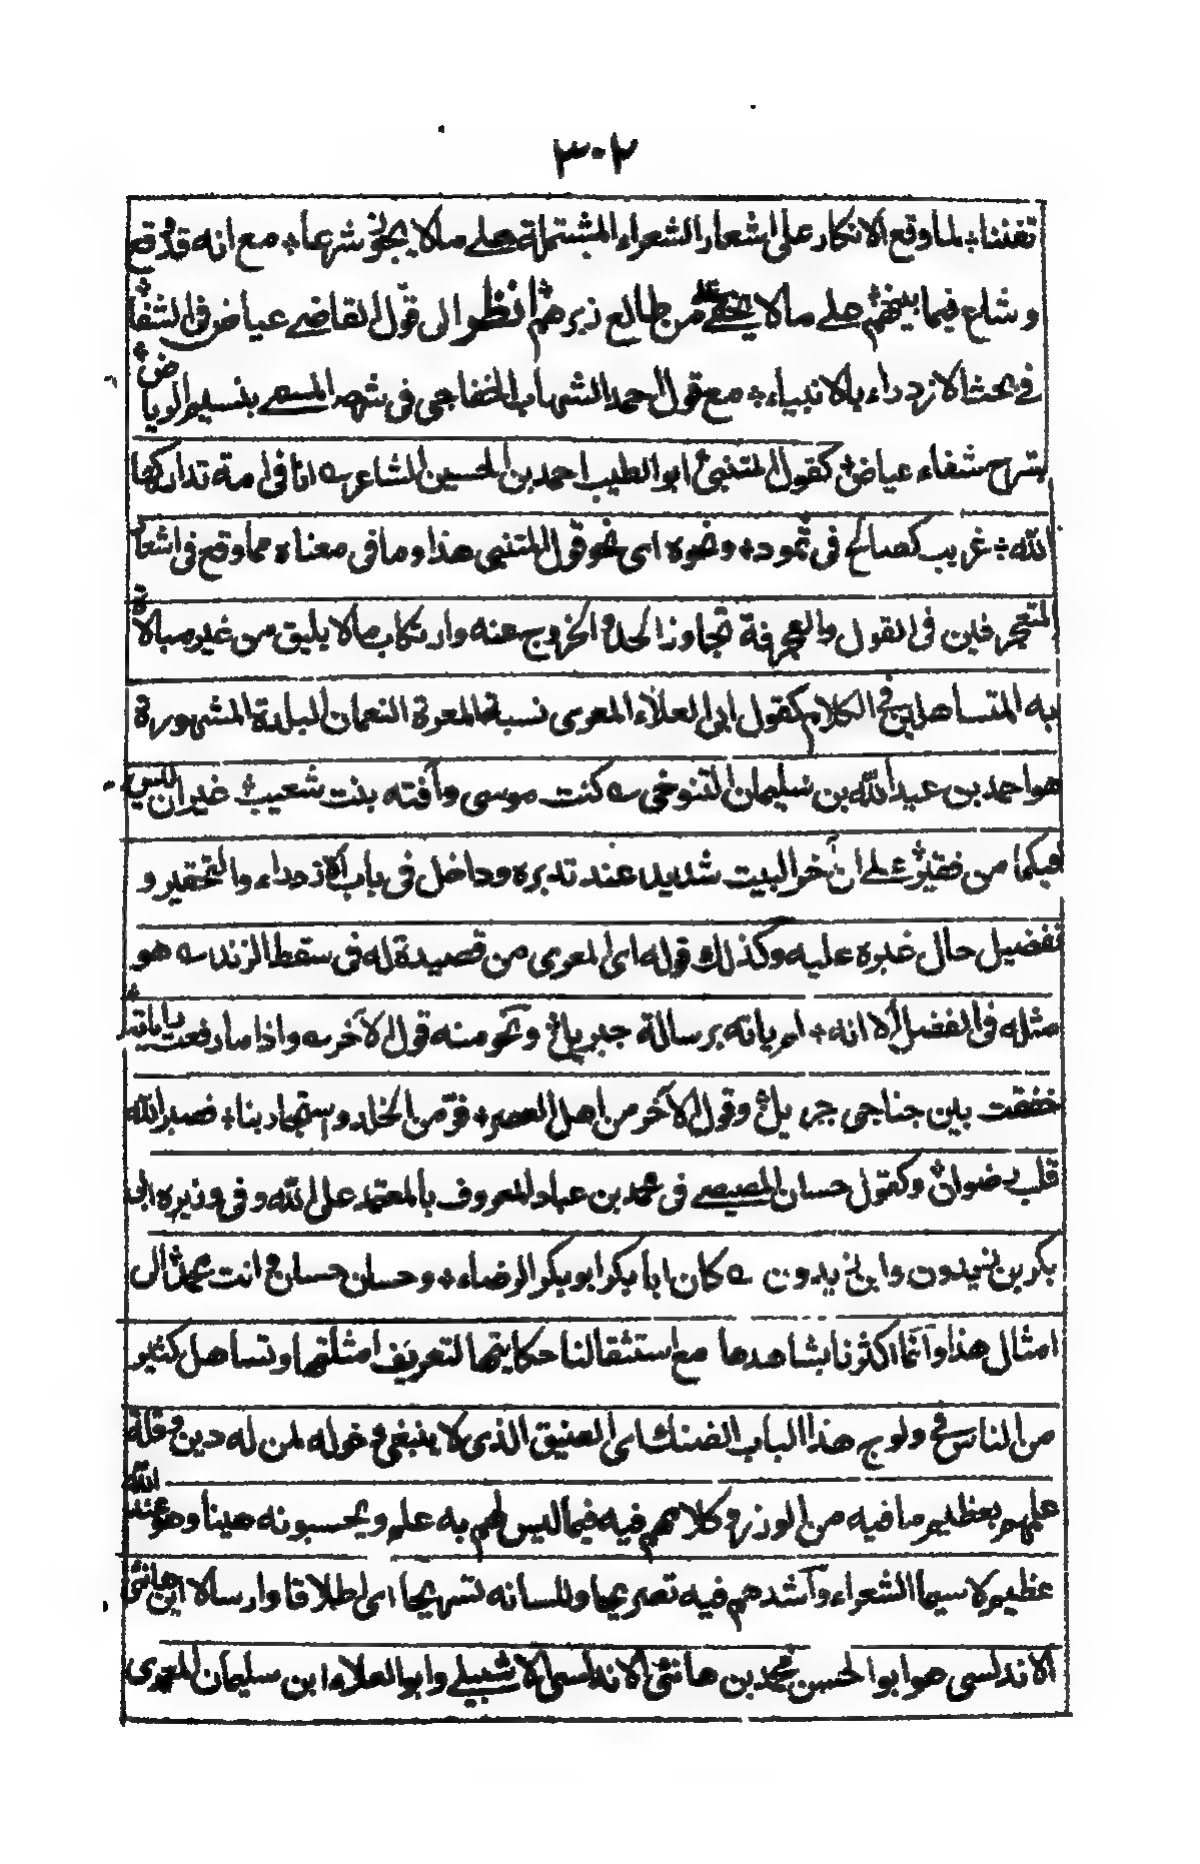 ٣٠٢
تفننا؛ لما وقع الانكار على اشعار الشعراء المشتملة على ما لا يجوز شرعا؛ مع انه قد وقع
وشاع فيما بينهم على ما لا يخفى من طالع زبرهم انظر الى قول القاضى عياض فى الشفا
فى بحث الازدراء بالانبياء؛ مع قول احمد الشهاب الخفاجى فى شهر المسمى بنسيم الرياض
بشرح شفاء عياض كقول المتنبى ابو الطيب احمد بن الحسين الشاعر ے انا فى امة تداركها
الله؛ غريب كصالح فى ثمود؛ ونحوه اى نحو قول المتنبى هذا وما فى معناه مما وقع فى اشعار
المتعجرفين فى القول والعجرفة تجاوز الحد والخروج عنه وارتكاب ما لا يليق من غير مبالاة
به المتساهلين فى الكلام كقول ابى العلاء المعرى نسبة لمعرة النعمان البلدة المشهورة
هو احمد بن عبد الله بن سليمان التنوخى ے كنت موسى وآفته بنت شعيب غير ان ليس
فيكما من فقير على ان آخر البيت شديد عند تدبره وداخل فى باب الازدراء والتحقير و
تفضيل حال غيره عليه وكذلك قوله اى المعرى من قصيدة له فى سقط الزند ے هو
مثله فى الفضل الا انه؛ لم ياته برسالة جبريل ونحو منه قول الآخر ے واذا ما رفعت راياته
خفقت بين جناحى جبريل وقول الآخر من اهل العصر؛ فر من الخلد واستجار بنا؛ فصبر الله
قلب رضوان وكقول حسان المصيصى فى محمد بن عباد المعروف بالمعتمد على الله وفى وزيره ابى
بكر بن زيدون وابن زيدون ے كان ابا بكر ابو بكر الرضاء؛ وحسان حسان وانت محمد الى
امثال هذا وانما اكثرنا بشاهدها مع استثقالنا حكايتها لتعريف امثلتها وتساهل كثير
من الناس فى ولوج هذا الباب الضنك اى الضيق الذى لا ينبغى دخوله لمن له دين وقلة
علمهم بعظيم ما فيه من الوزر وكلامهم فيه فيما ليس لهم به علم ويحسبونه هينا وهو عند الله
عظيم لا سيما الشعراء وأشدهم فيه تصريحا وللسانه تسريحا اى اطلاقا وارسالا ابن هانئ
الاندلسى هو ابو الحسن محمد بن هانئ الاندلسى الاشبيلى وابو العلاء ابن سليمان المعرى